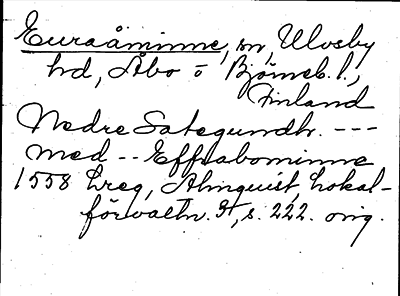 Euraåminne, sn, Ulvsby
hd, Åbo o Björneb. l.,
Finland
Nedre Sategundh. ---
med -- Effrabominne
1558 Lreg, Almquist, Lokal-
förvaltn. 4, s. 222. orig.